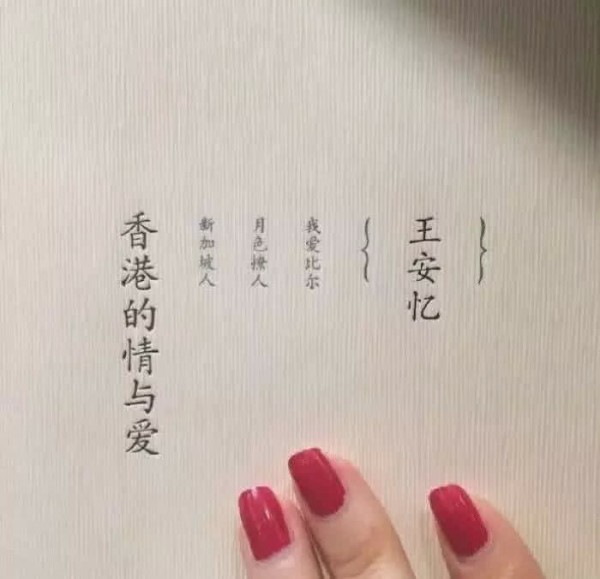 {王安忆}
我爱比尔
月色撩人
新加坡人
香港的情与爱